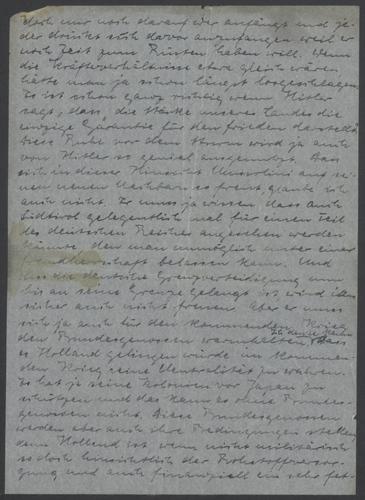 doch nur noch darauf wer anfängt und je-
der drückt sich davor anzufangen weil er
noch Zeit zum Rüsten haben will. Wenn
die Kräfteverhältnisse etwa gleich wären,
hätte man ja schon längst losgeschlagen.
Es ist schon ganz richtig wenn Hitler
sagt, dass die Stärke unseres Landes die
einzige Garantie für den Frieden darstellt.
Diese Ruhe vor dem Sturm wird ja auch
von Hitler so genial ausgenutzt. Dass
sich in dieser Hinsicht Mussolini auf sei-
nen neuen Nachbarn so freut, glaube ich
auch nicht. Er muss ja wissen dass auch
Südtirol gelegentlich mal für einen Teil
des deutschen Reiches angesehen werden
könnte, den man unmöglich unter einer
Fremdherrschaft belassen kann. Und
dass die deutsche Grenzverteidigung nun
bis an seine Grenze gelangt ist wird ihn
sicher auch nicht freuen. Aber er muss
sich ja auch für den kommenden Krieg
den Bundesgenossen warmhalten. dass
es Holland gelingen würde im kommen-
den Krieg seine Neutralität zu wahren.
Es hat ja seine Kolonien vor Japan zu
schützen und das kann es ohne Bundes-
genossen nicht. Diese Bundesgenossen
werden aber auch ihre Bedingungen stellen
denn Holland ist wenn nicht militärisch
so doch hinsichtlich der Rohstoffversor-
gung und auch finanziell ein sehr fet-